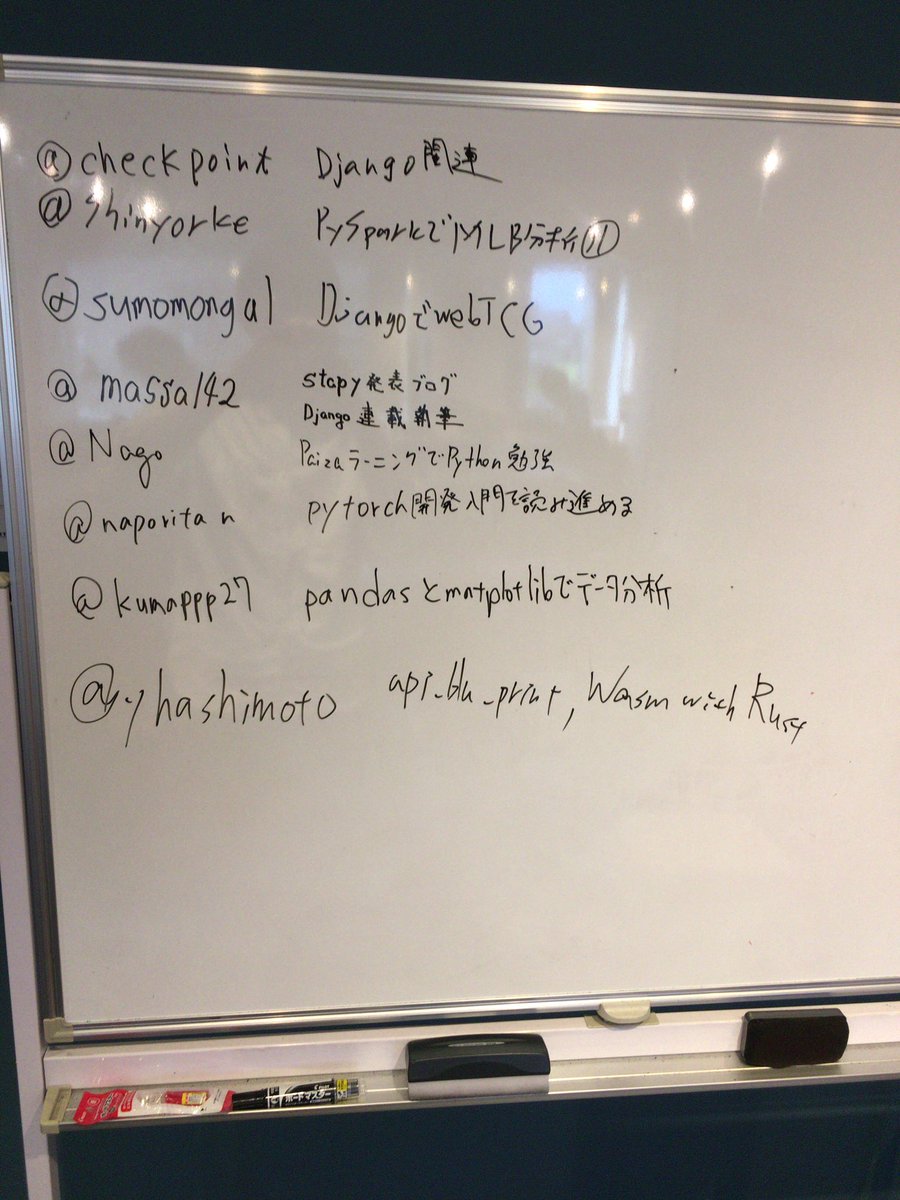 @checkpoint Django関連
@shinyorke PySparkでMLB分析⑪
@sumomongal DjangoでwebTCG
@massa142 stapy発表ブログ
Django連載執筆
@Nago PaizaラーニングでPython勉強
@naporitan pytorch開発入門を読み進める
@kumappp27 pandasとmatplotlibでデータ分析
@y-yhashimoto api_blu_print, Wasm with Rust
ボードマスター